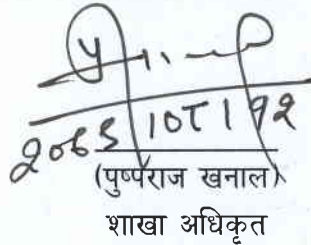 २०७९।०८।१२
(पुष्पराज खनाल)
शाखा अधिकृत